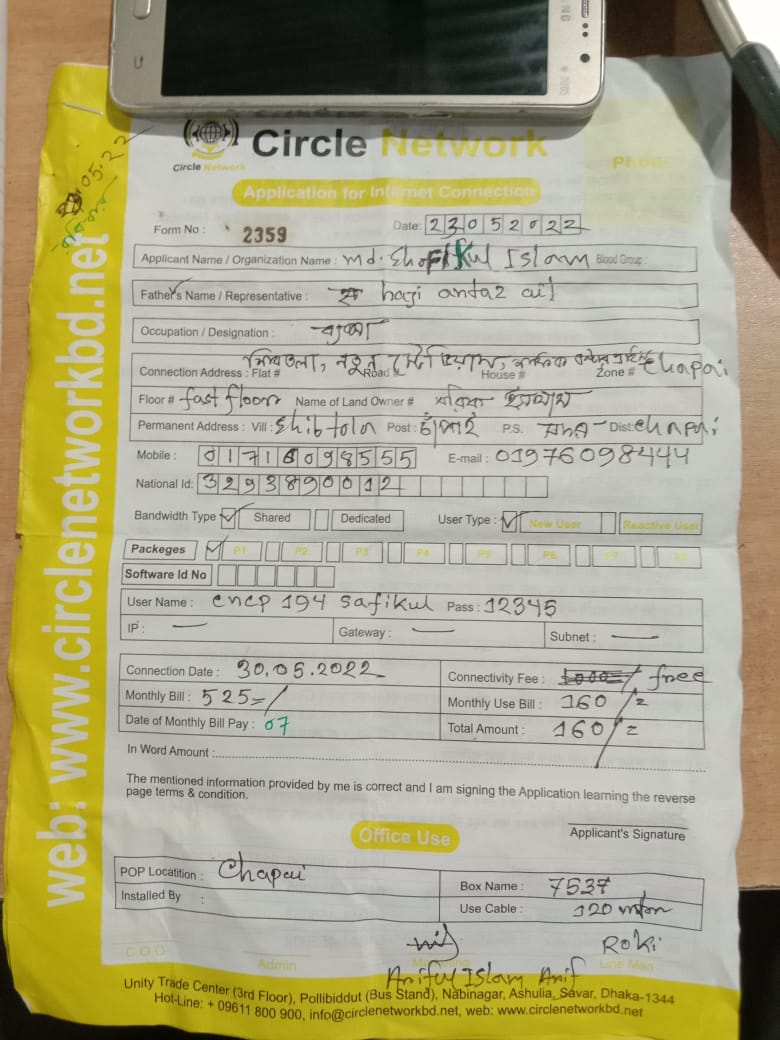 Circle Network
Circle Network
Application for Internet Connection
05.22
Form No : 2359
Date: 23052022
Applicant Name / Organization Name : Md. Shofikul Islam Blood Group :
Father's Name / Representative : haji antaz ali
Occupation / Designation :
শিবতলা, নতুন স্টেডিয়াম,
Connection Address : Flat # Road # House # Zone # Chapai
Floor # fast floor Name of Land Owner #
Permanent Address : Vill : Shibtola Post : চাঁপাই P.S. সদর Dist: Chapai
Mobile : 01716098555 E-mail : 01976098444
National Id: 3293890012
Bandwidth Type Shared Dedicated User Type : New User Reactive User
Packeges P1 P2 P3 P4 P5 P6 P7 P8
Software Id No
User Name : cncp 194 safikul Pass : 12345
IP : — Gateway : — Subnet : —
Connection Date : 30.05.2022 Connectivity Fee : free
Monthly Bill : 525=/ Monthly Use Bill : 160/=
Date of Monthly Bill Pay : 07 Total Amount : 160/=
In Word Amount :
The mentioned information provided by me is correct and I am signing the Application learning the reverse
page terms & condition.
Applicant's Signature
Office Use
POP Locatition : Chapai Box Name : 7537
Installed By : Use Cable : 120
Roki
C O O Admin Line Man
Ariful Islam Arif
Unity Trade Center (3rd Floor), Pollibiddut (Bus Stand), Nabinagar, Ashulia, Savar, Dhaka-1344
Hot-Line: + 09611 800 900, info@circlenetworkbd.net, web: www.circlenetworkbd.net
web: www.circlenetworkbd.net